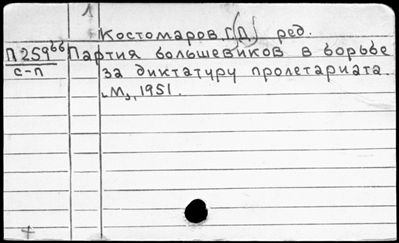 1
Костомаров, Г(Д) ред.
П259⁶⁶ Партия большевиков в борьбе
с-п за диктатуру пролетариата.
М, 1951.
+